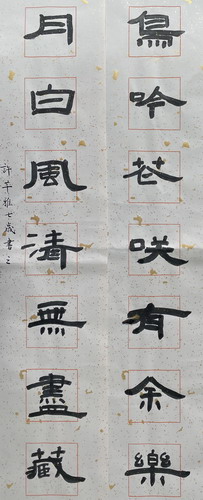 鳥吟芲咲有余樂
月白風清無盡藏
許芊雅七歲書之